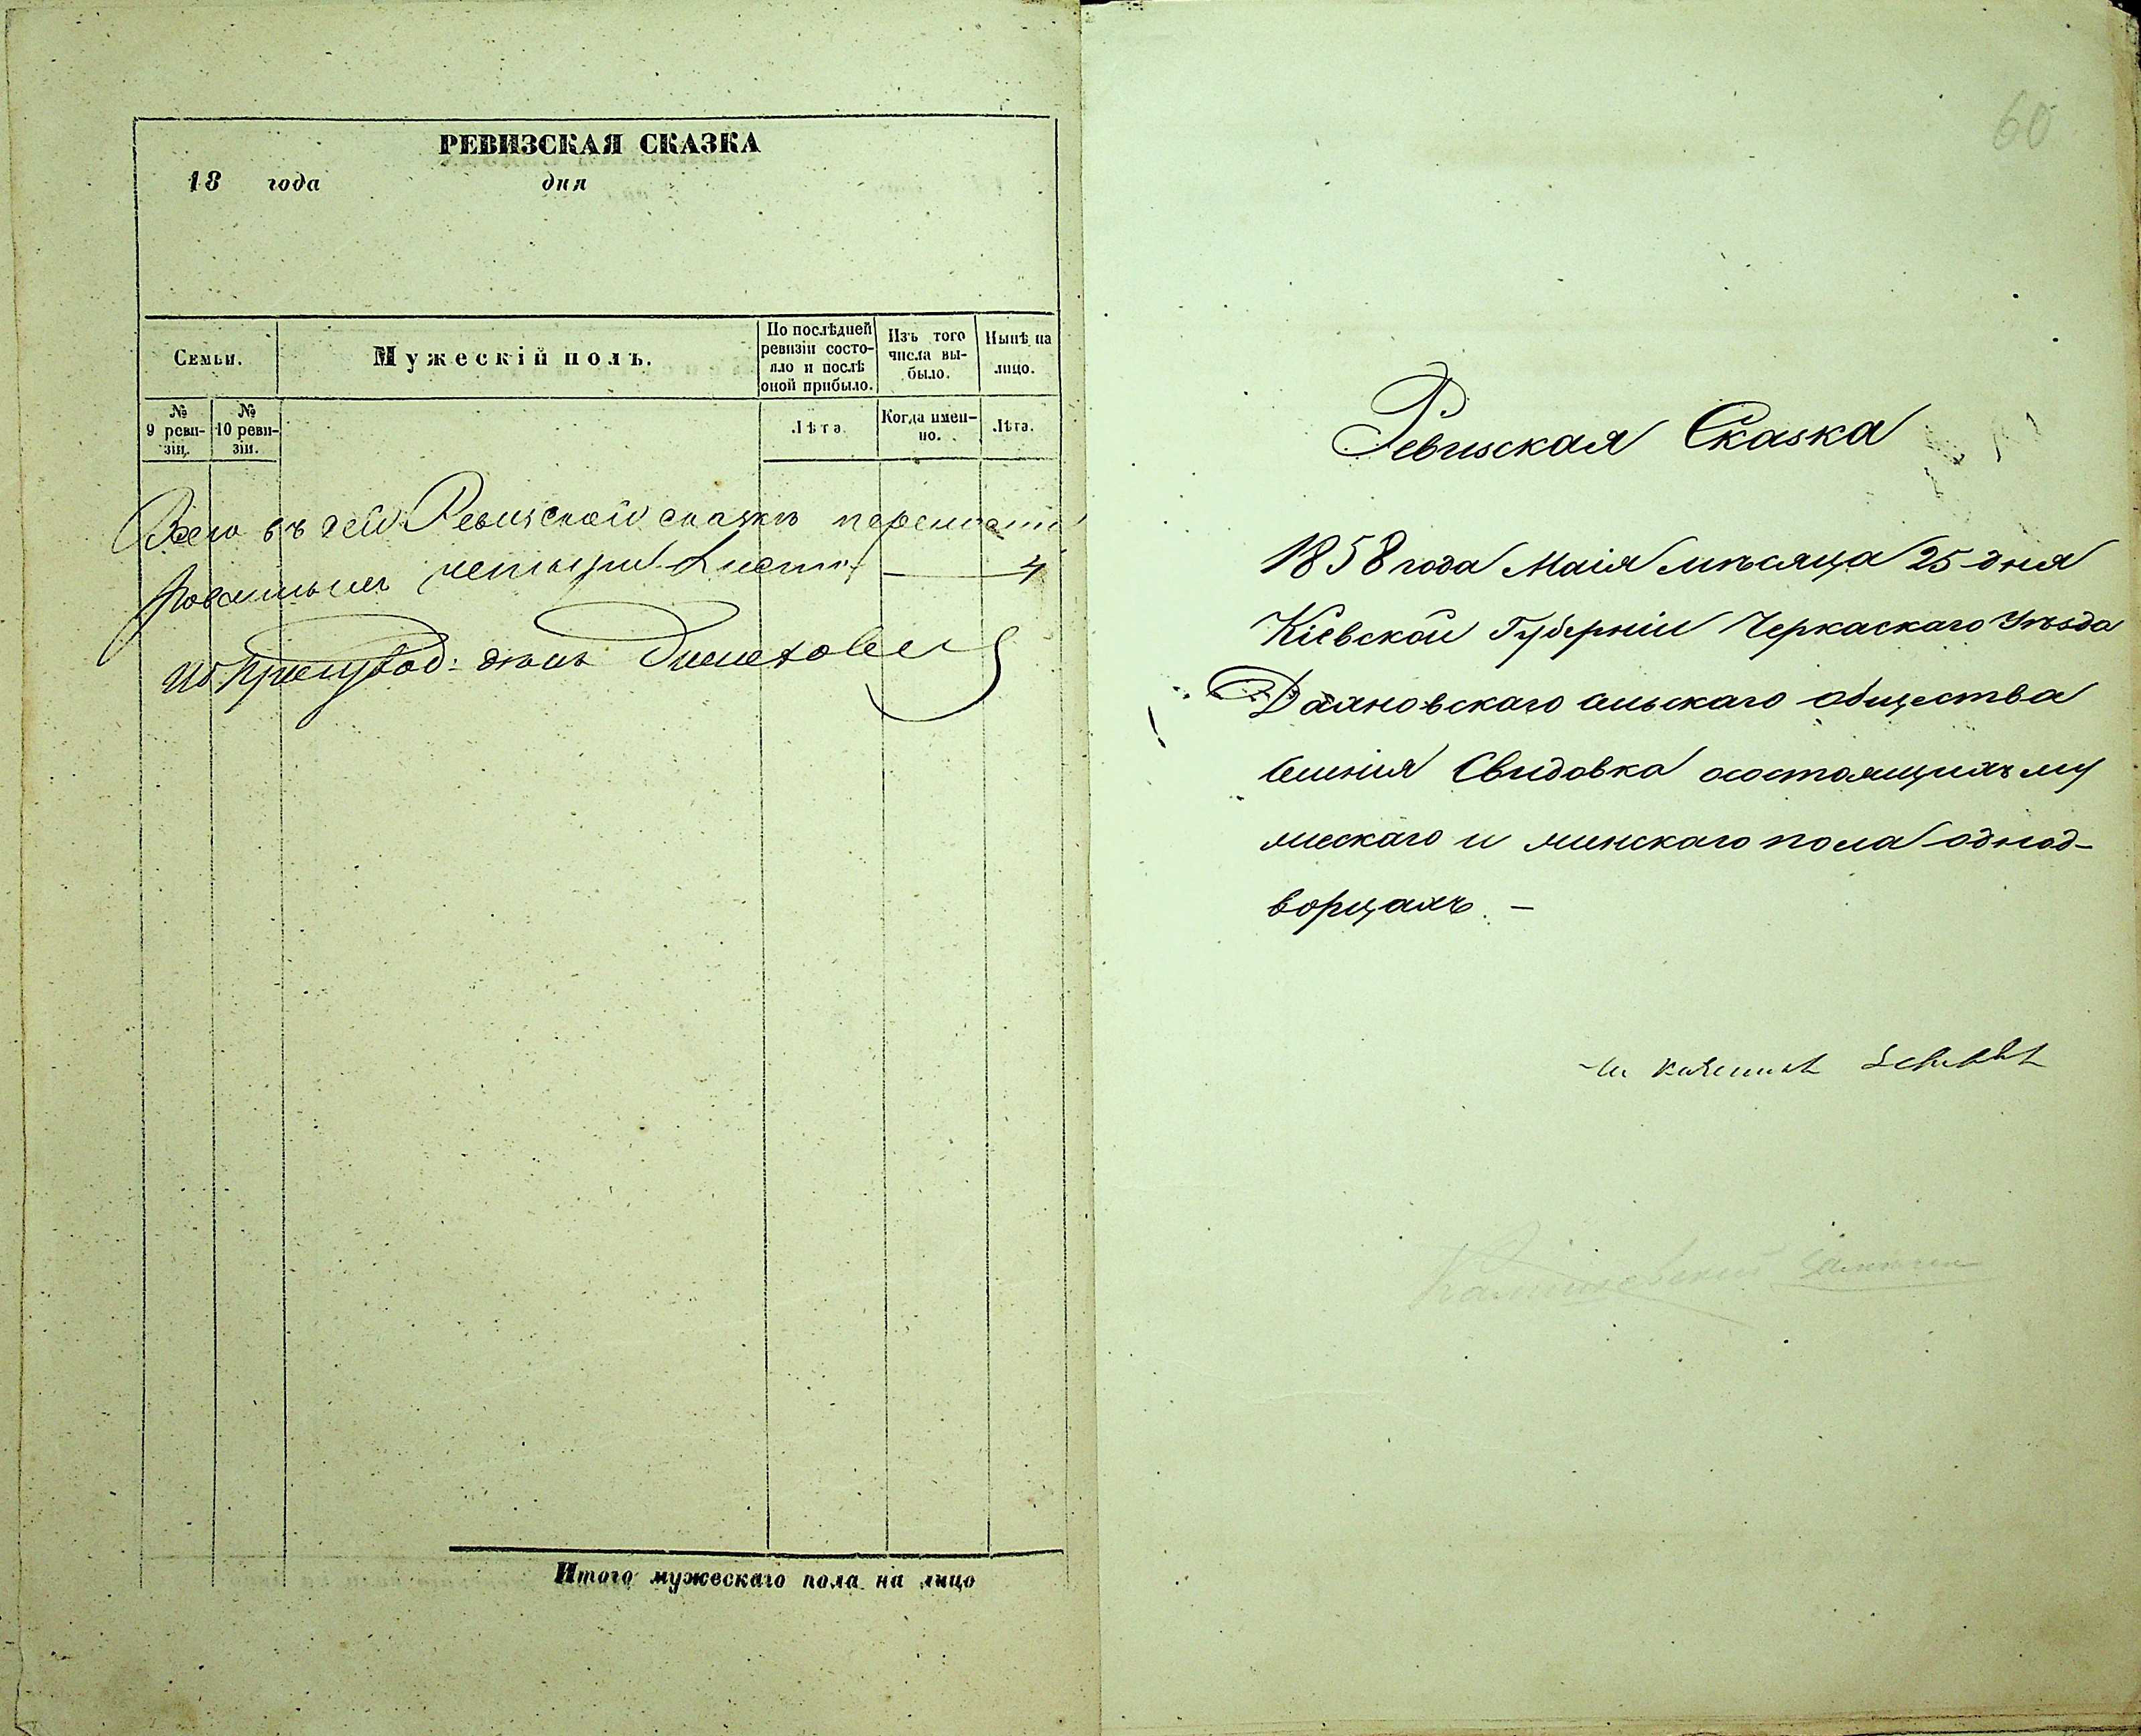 РЕВИЗСКАЯ СКАЗКА
18 года дня
Семьи.
Мужескій полъ.
По послѣдней ревизіи состо-
яло и послѣ
оной прибыло.
Изъ того
числа вы-
было.
Нынѣ на
лицо.
№
9 реви-
зіи.
№
10 реви-
зіи.
Лѣта
Когда имен-
но.
Лѣта.
Всего въ сей Ревизской сказкѣ
четыри листа 4
Итого мужескаго пола на лицо
60
Ревизская Сказка
1858 года Маія мѣсяца 25 дня
Кіевской Губерніи Черкаскаго Уѣзда
сельскаго общества
селенія Свидовка осостоящихъ му
жескаго и женскаго пола однод-
ворцахъ. –